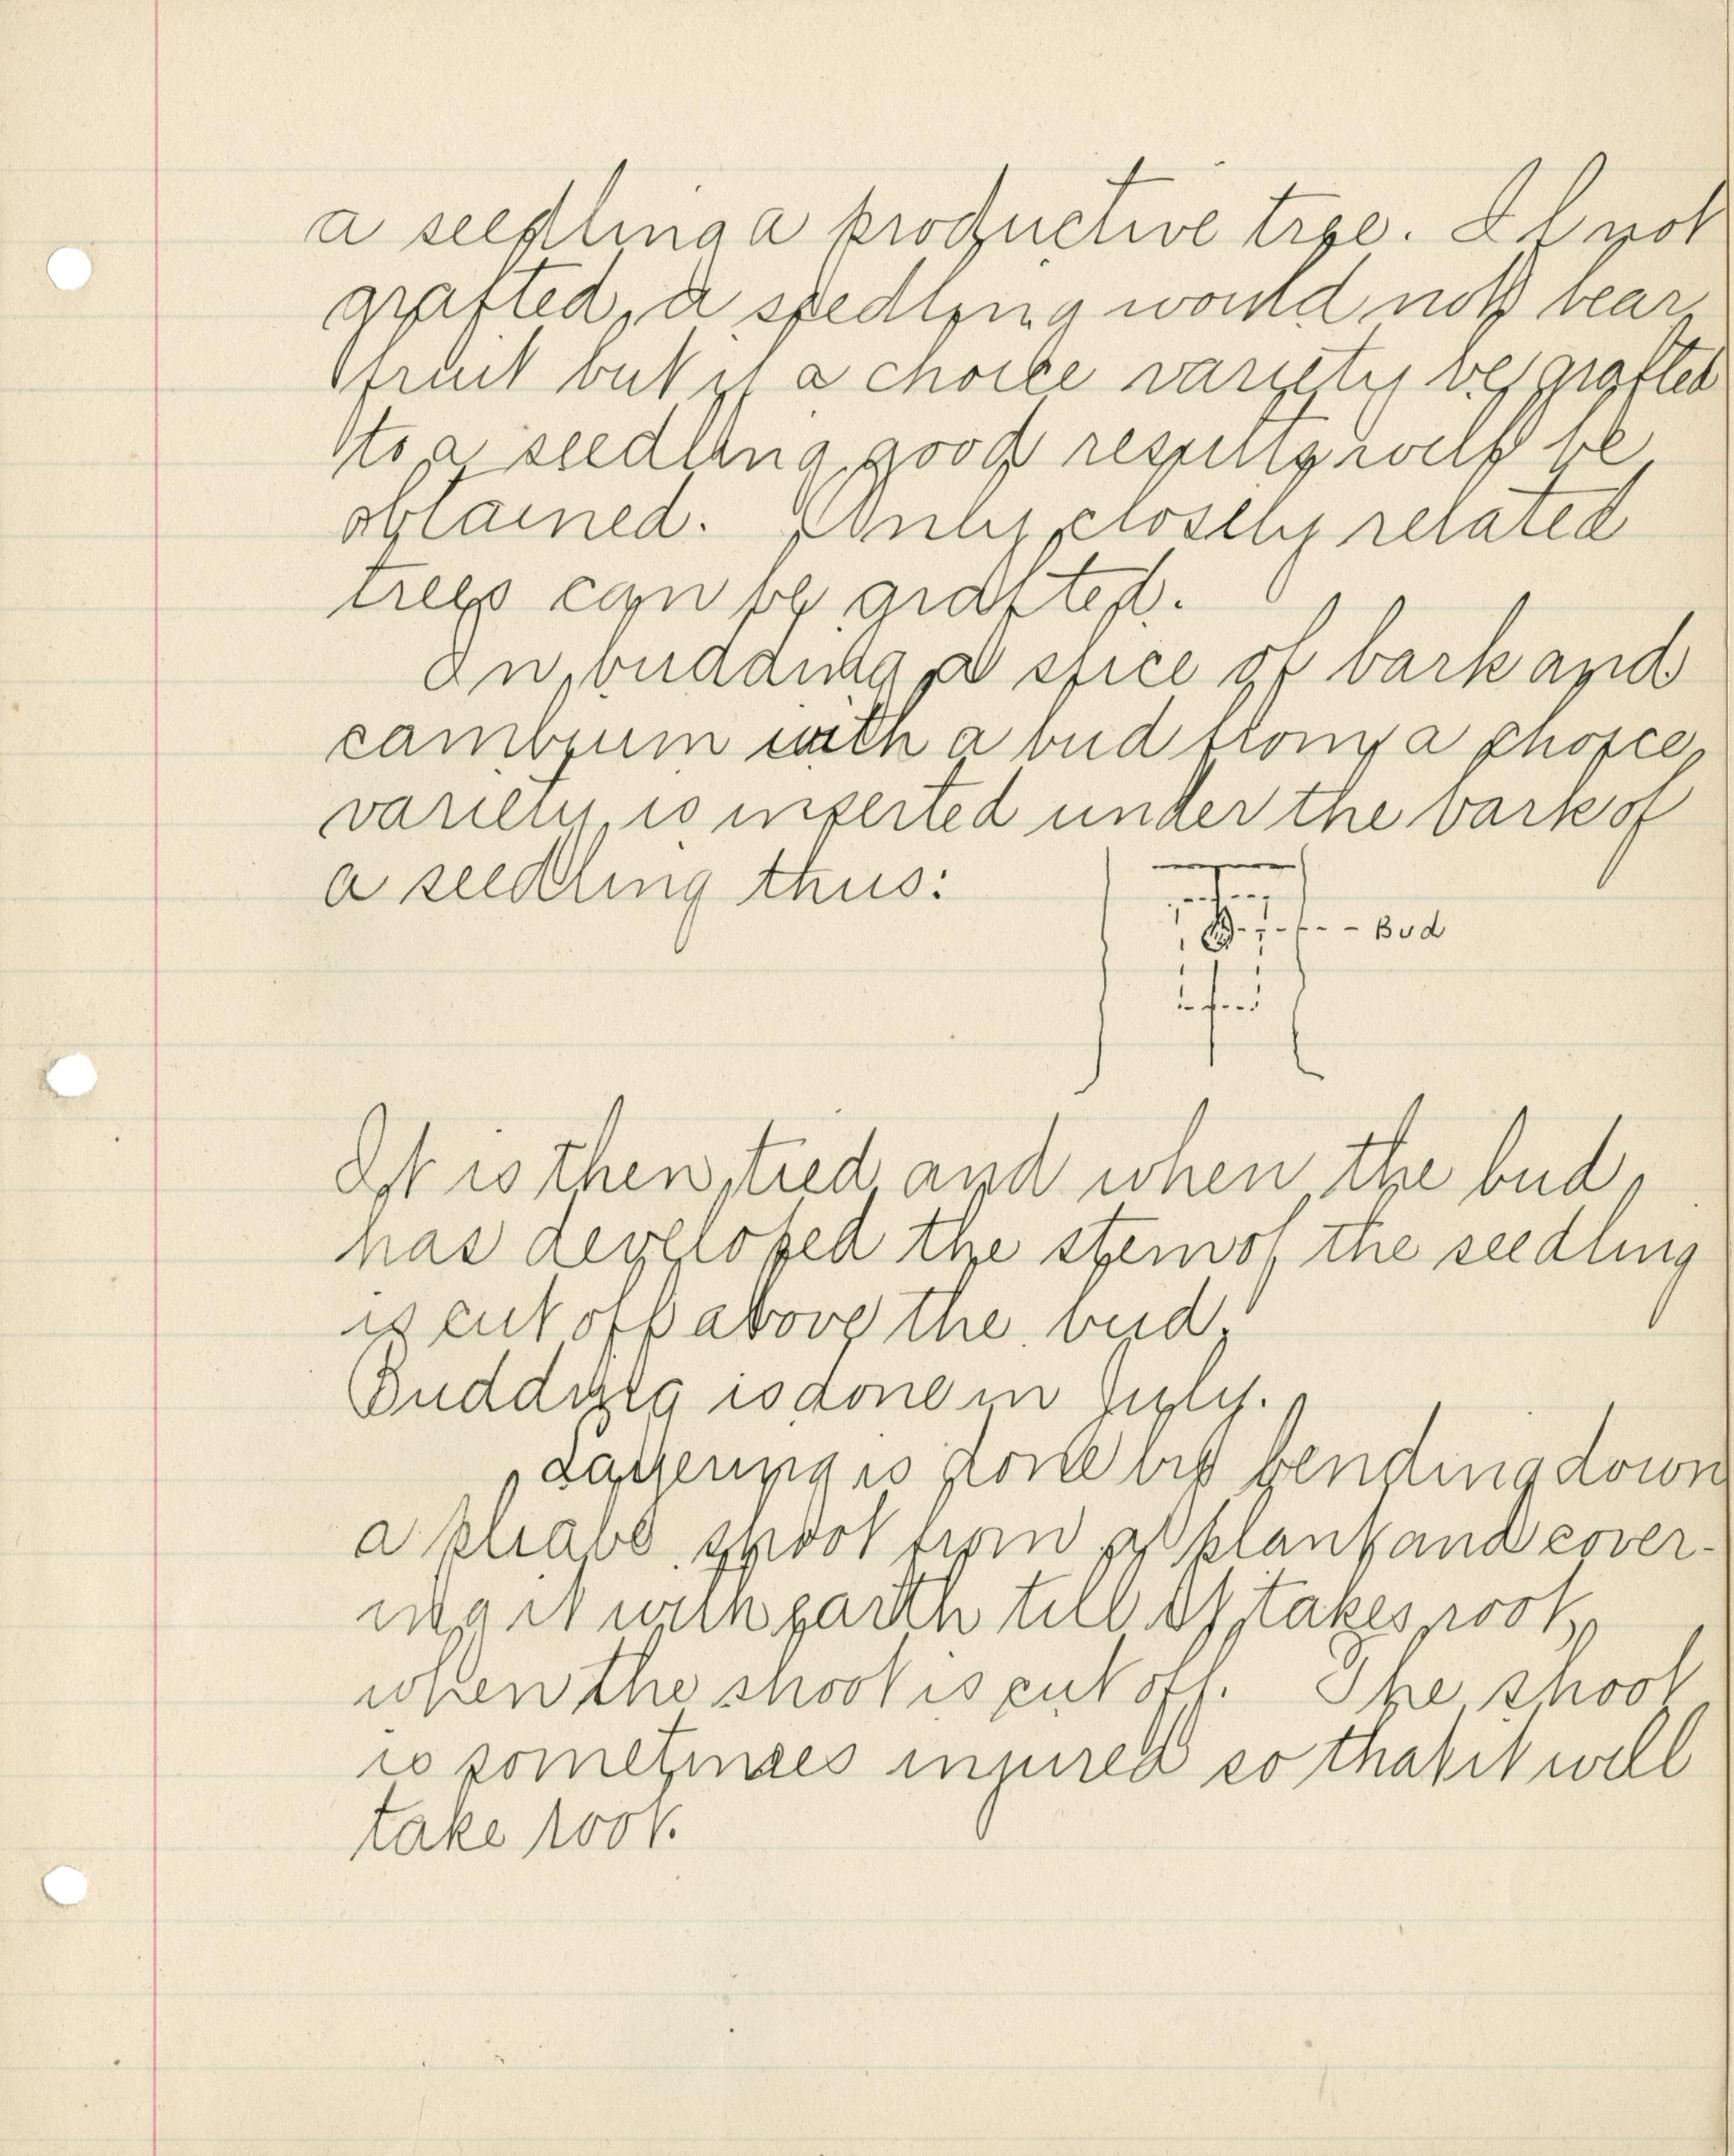 a seedling a productive tree. If not
grafted, a seedling would not bear
fruit but if a choice variety be grafted
to a seedling good results will be
obtained. Only closely related
trees can be grafted.
In budding a slice of bark and
cambium with a bud from a choice
variety is inserted under the bark of
a seedling thus:
Bud
It is then tied and when the bud
has developed the stem of the seedling
is cut off above the bud.
Budding is done in July.
Layering is done by bending down
a pliable shoot from a plant and cover-
ing it with earth till it takes root,
when the shoot is cut off. The shoot
is sometimes injured so that it will
take root.